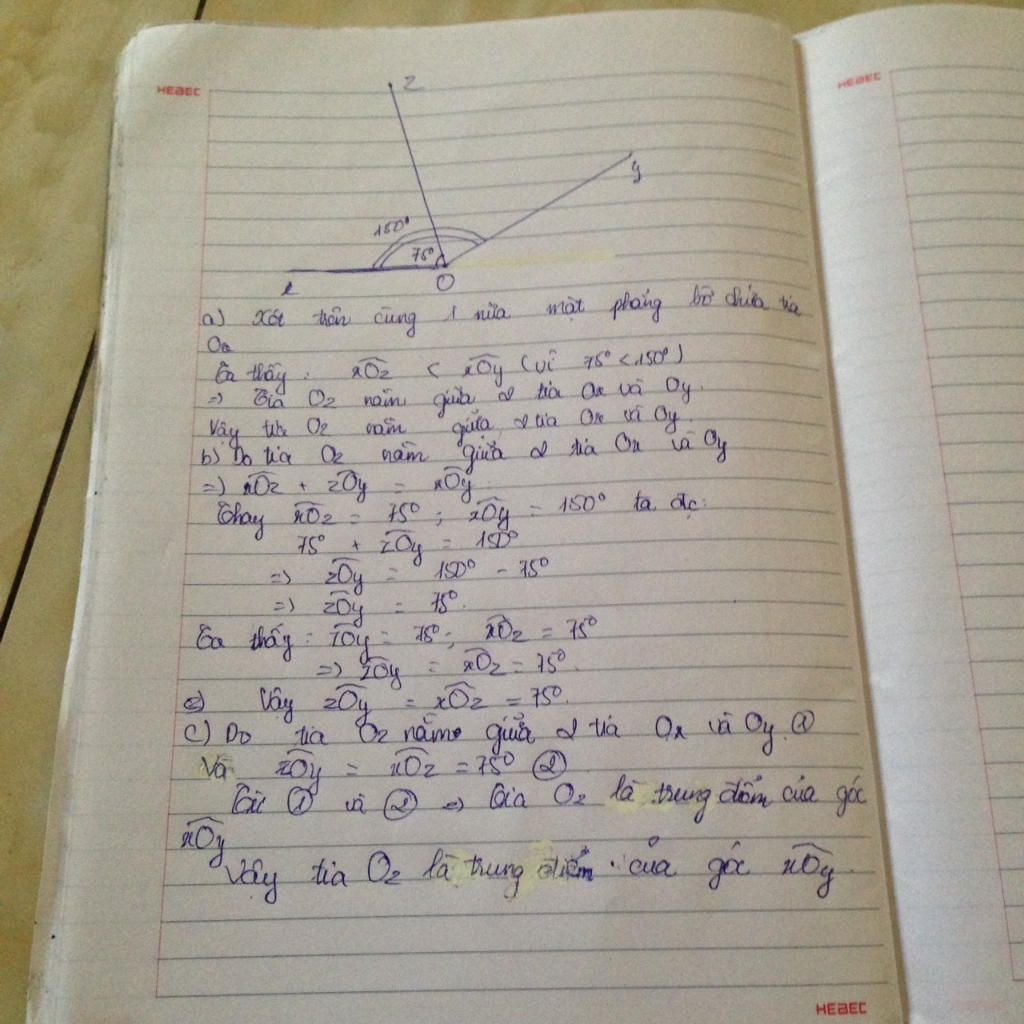 HEBEC
HEBEC
z
y
150°
75°
x
O
a) Xét trên cùng 1 nửa mặt phẳng bờ chứa tia
Ox
Ta thấy: xOz < xOy (vì 75° < 150°)
=> Tia Oz nằm giữa 2 tia Ox và Oy.
Vậy tia Oz nằm giữa 2 tia Ox và Oy.
b) Do tia Oz nằm giữa 2 tia Ox và Oy
=> xOz + zOy = xOy
Thay xOz = 75°; xOy = 150° ta đc:
75° + zOy = 150°
=> zOy = 150° - 75°
=> zOy = 75°.
Ta thấy: zOy = 75°; xOz = 75°
=> zOy = xOz = 75°
Vậy zOy = xOz = 75°.
c) Do tia Oz nằm giữa 2 tia Ox và Oy ①
Và zOy = xOz = 75° ②
Từ ① và ② => Tia Oz là trung điểm của góc
xOy
Vậy tia Oz là trung điểm của góc xOy.
HEBEC